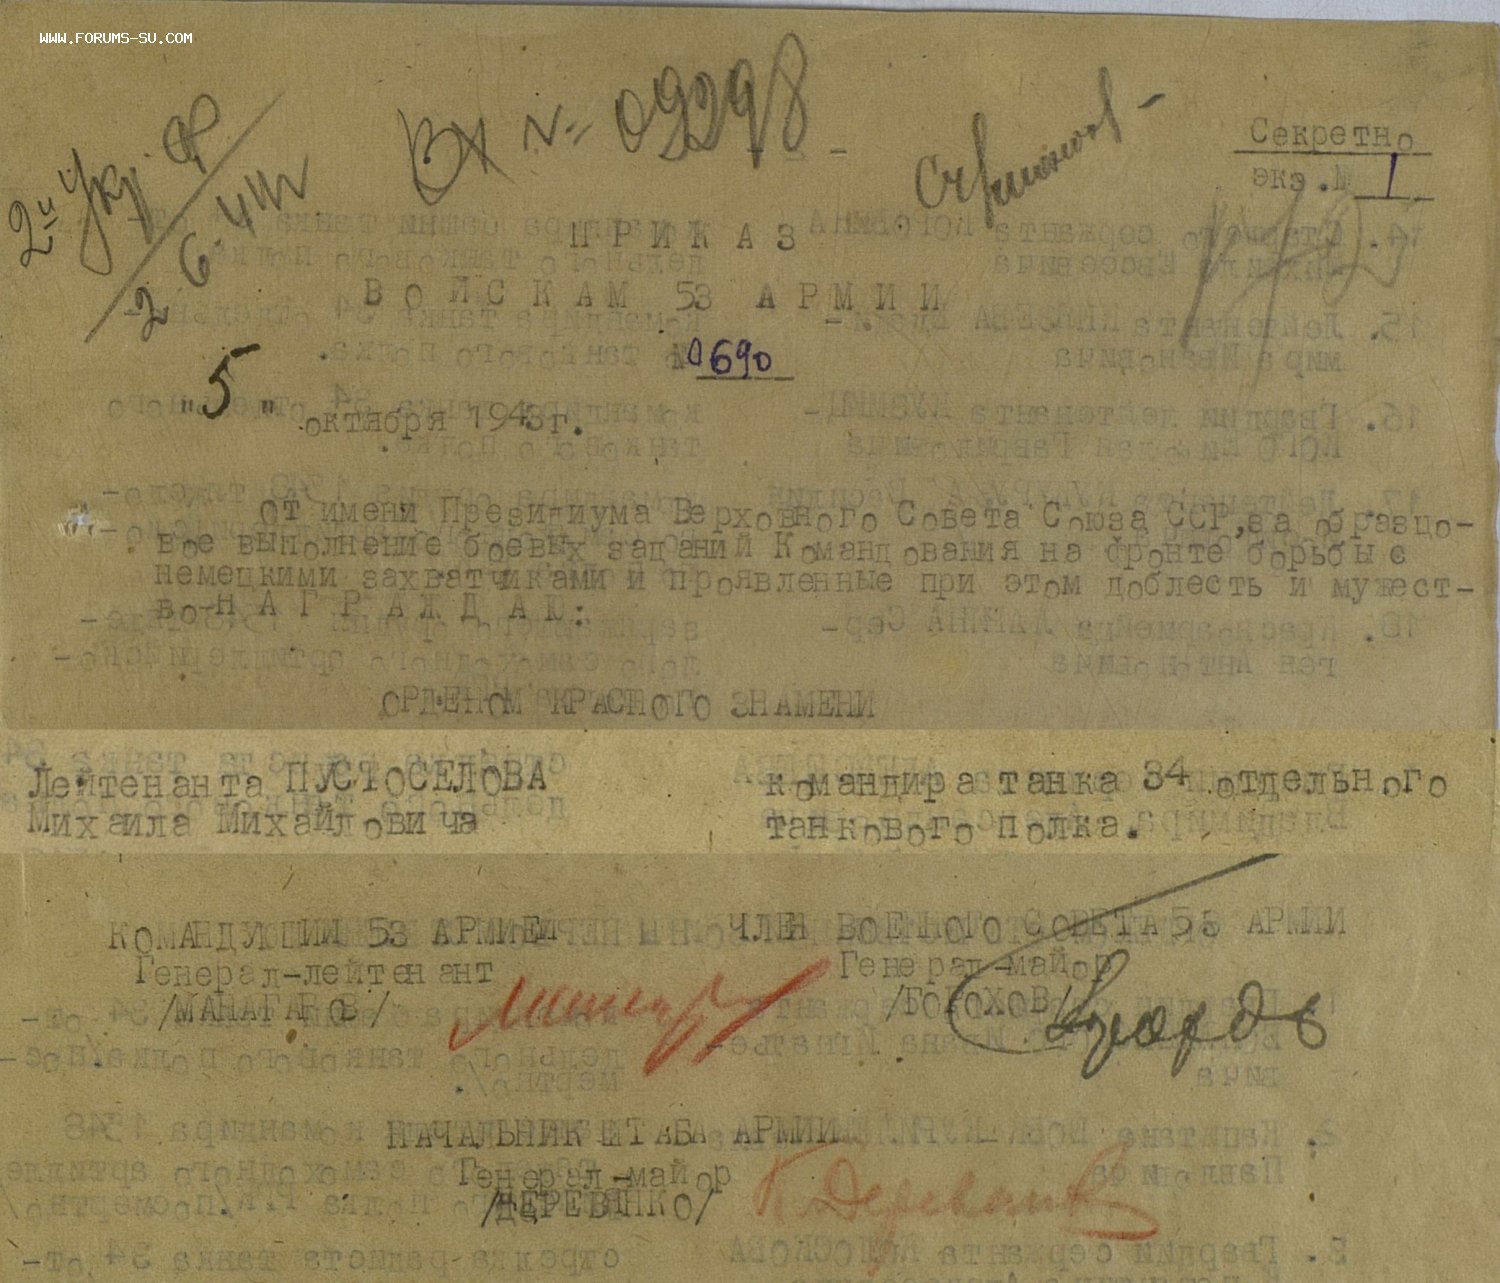 WWW.FORUMS-SU.COM
2й Укр Ф
2 6.4
Вх № 09298
Секретно
экз.№ 1
ПРИКАЗ
ВОЙСКАМ 53 АРМИИ
№ 0690
"5" октября 1943г.
От имени Президиума Верховного Совета Союза ССР,за образцо-
вое выполнение боевых заданий Командования на фронте борьбы с
немецкими захватчиками и проявленные при этом доблесть и мужест-
во-НАГРАЖДАЮ:
ОРДЕНОМ КРАСНОГО ЗНАМЕНИ
Лейтенанта ПУСТОСЕЛОВА командира танка 34 отдельного
Михаила Михайловича танкового полка.
КОМАНДУЮЩИЙ 53 АРМИЕЙ ЧЛЕН ВОЕННОГО СОВЕТА 53 АРМИИ
Генерал-лейтенант Генерал-майор
/МАНАГАРОВ/ /ГОРОХОВ/
НАЧАЛЬНИК ШТАБА АРМИИ
Генерал-майор
/ДЕРЕВЯНКО/ К Деревянко